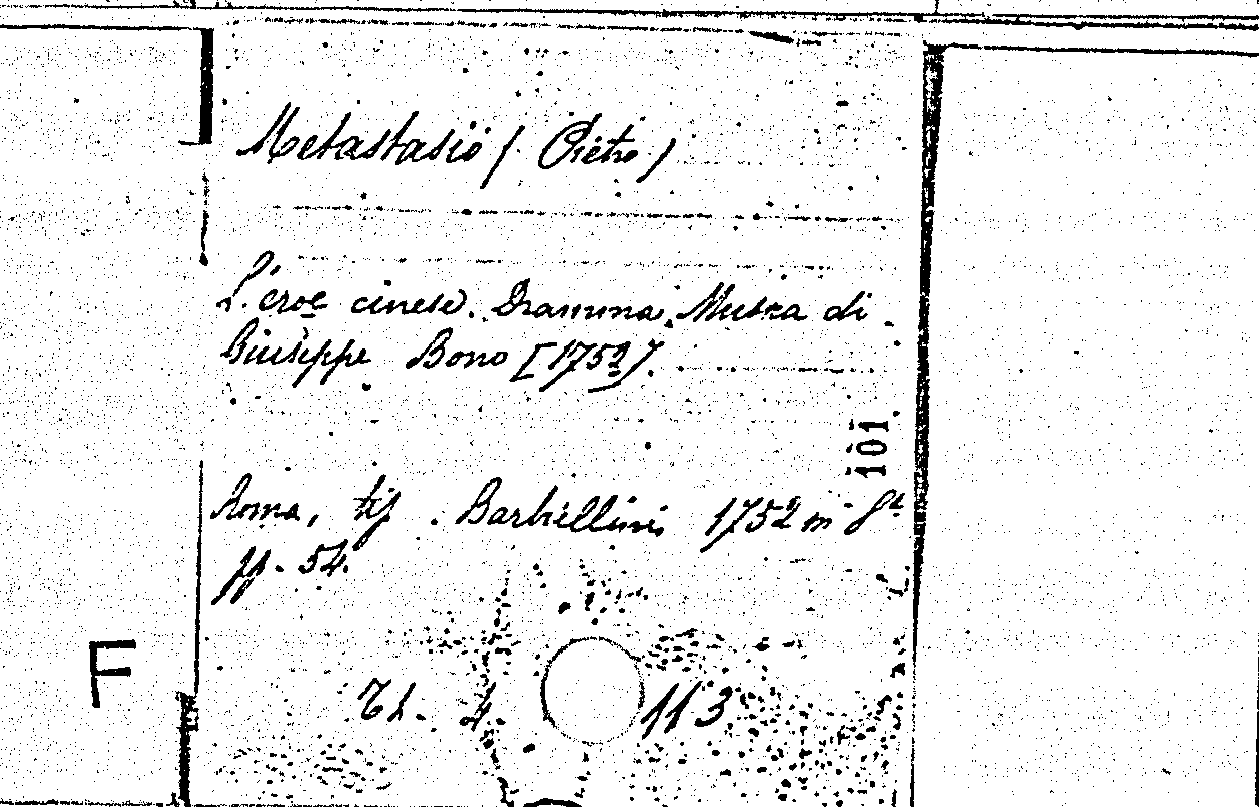 Metastasio (Pietro)
L'eroe cinese. Dramma. Musica di
Giuseppe Bono [1752].
101
Roma, tip. Barbiellini 1752 in 8º
pp. 54.
F
113